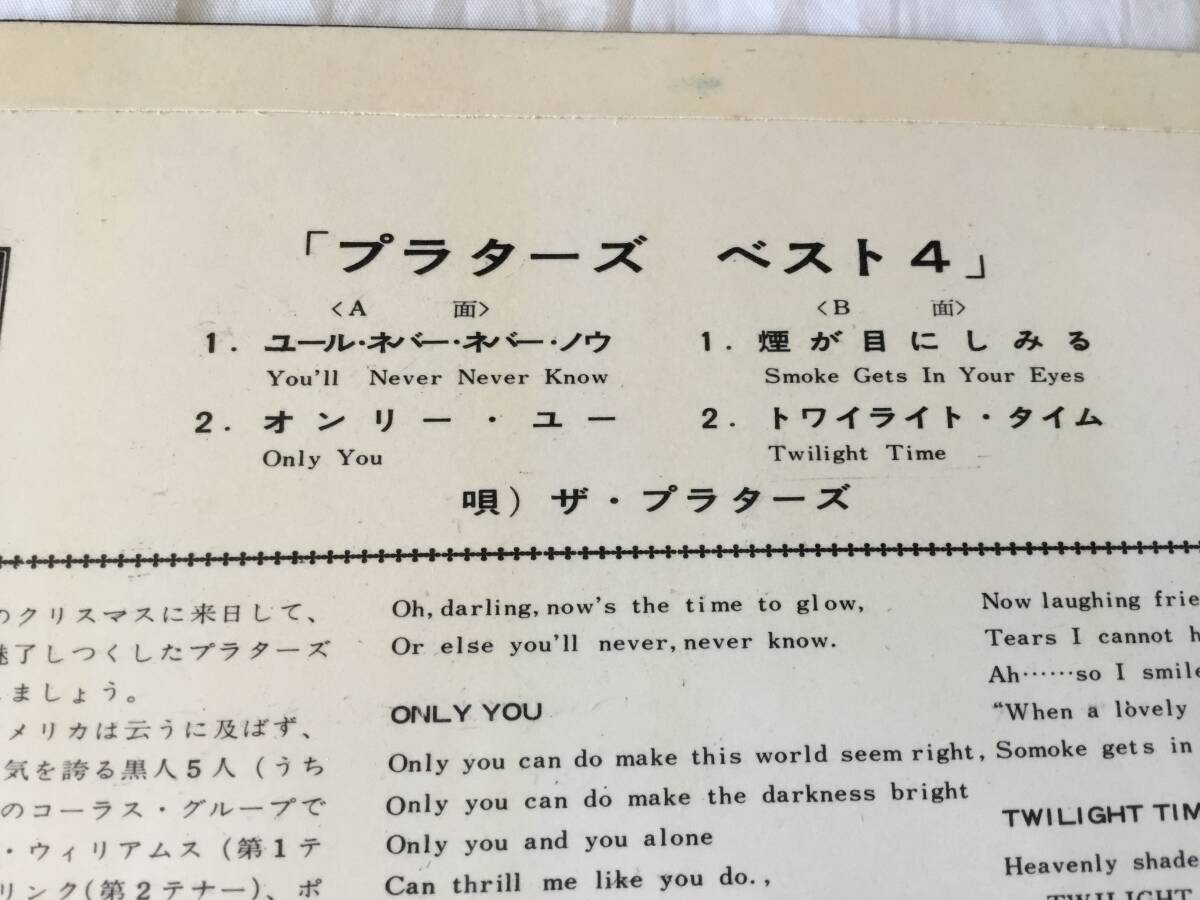 「プラターズ ベスト4」
<A 面>
1. ユール・ネバー・ネバー・ノウ
You'll Never Never Know
2. オンリー・ユー
Only You
<B 面>
1. 煙が目にしみる
Smoke Gets In Your Eyes
2. トワイライト・タイム
Twilight Time
唄) ザ・プラターズ
のクリスマスに来日して、
魅了しつくしたプラターズ
ましょう。
メリカは云うに及ばず、
気を誇る黒人5人(うち
のコーラス・グループで
・ウィリアムス(第1テ
リンク(第2テナー)、ポ
Oh, darling, now's the time to glow,
Or else you'll never, never know.
ONLY YOU
Only you can do make this world seem right,
Only you can do make the darkness bright
Only you and you alone
Can thrill me like you do.,
Now laughing frie
Tears I cannot h
Ah……so I smile
"When a lovely
Somoke gets in
TWILIGHT TIM
Heavenly shade
TWILIGHT